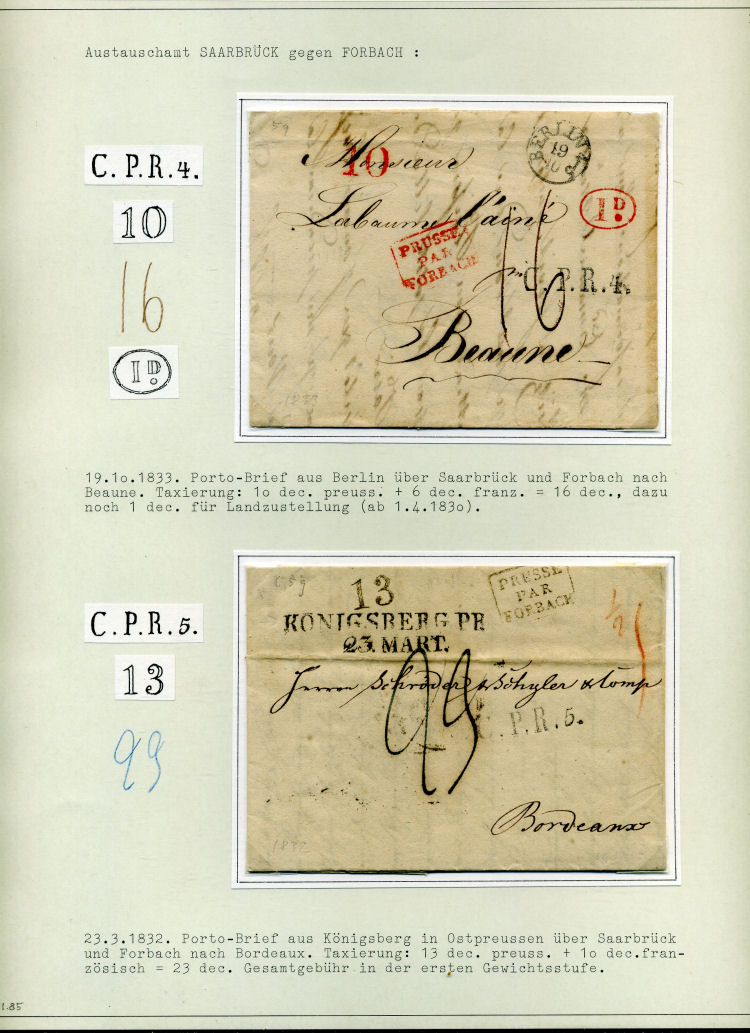 Austauschamt SAARBRÜCK gegen FORBACH :
C.P.R.4.
10
16
1D.
59
10
BERLIN
19
10
Monsieur
Labaume l'ainé
1D.
PRUSSE
PAR
FORBACH
16
C.P.R.4.
Beaune
1833
19.1o.1833. Porto-Brief aus Berlin über Saarbrück und Forbach nach
Beaune. Taxierung: 1o dec. preuss. + 6 dec. franz. = 16 dec., dazu
noch 1 dec. für Landzustellung (ab 1.4.183o).
C.P.R.5.
13
23
13
KÖNIGSBERG PR
23. MART.
PRUSSE
PAR
FORBACH
1/2
Herren Schröder & Schyler & Comp
23
C.P.R.5.
Bordeaux
1832
23.3.1832. Porto-Brief aus Königsberg in Ostpreussen über Saarbrück
und Forbach nach Bordeaux. Taxierung: 13 dec. preuss. + 1o dec.fran-
zösisch = 23 dec. Gesamtgebühr in der ersten Gewichtsstufe.
1.85